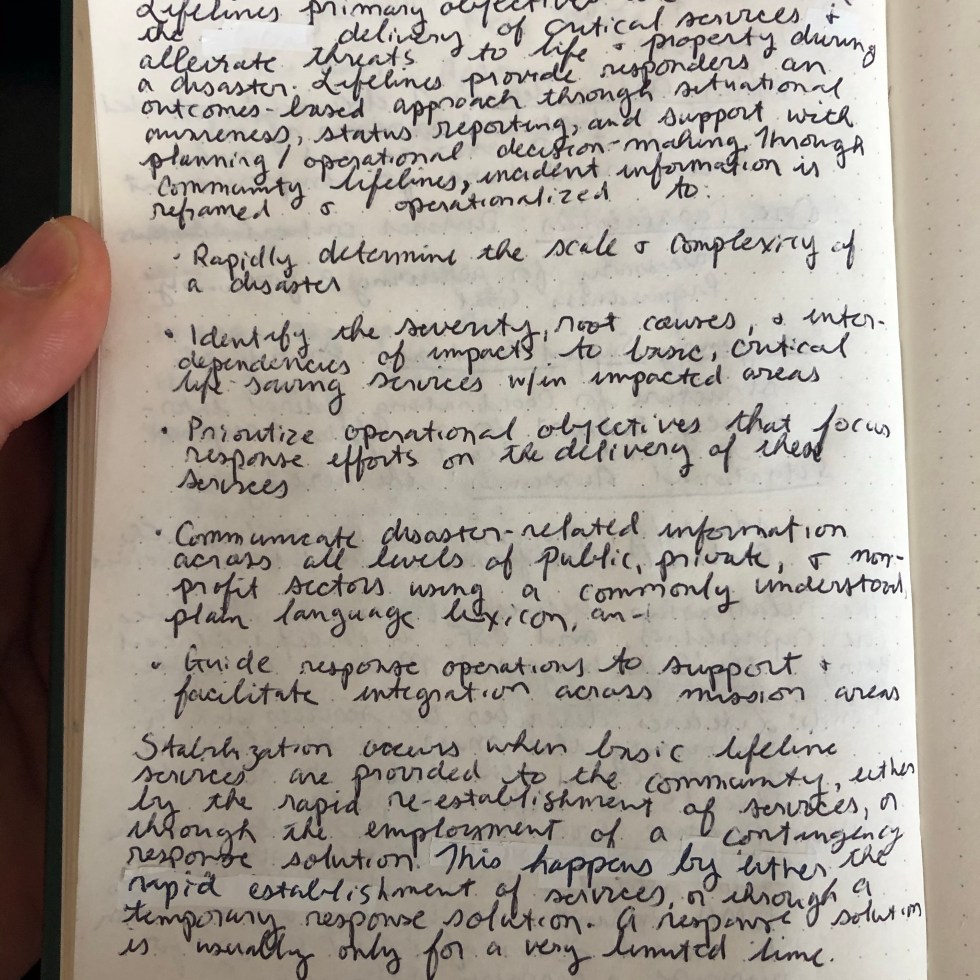 Lifelines primary objective
the delivery of critical services &
alleviate threats to life & property during
a disaster. Lifelines provide responders an
outcomes-based approach through situational
awareness, status reporting, and support with
planning / operational decision-making. Through
community lifelines, incident information is
reframed & operationalized to:
· Rapidly determine the scale & complexity of
a disaster
· Identify the severity, root causes, & inter-
dependencies of impacts to basic, critical
life-saving services w/in impacted areas
· Prioritize operational objectives that focus
response efforts on the delivery of these
services
· Communicate disaster-related information
across all levels of public, private, & non-
profit sectors using a commonly understood,
plain language lexicon, an
· Guide response operations to support &
facilitate integration across mission areas
Stabilization occurs when basic lifeline
services are provided to the community, either
by the rapid re-establishment of services, or
through the employment of a contingency
response solution. This happens by either the
rapid establishment of services, or through a
temporary response solution. A response solution
is usually only for a very limited time.